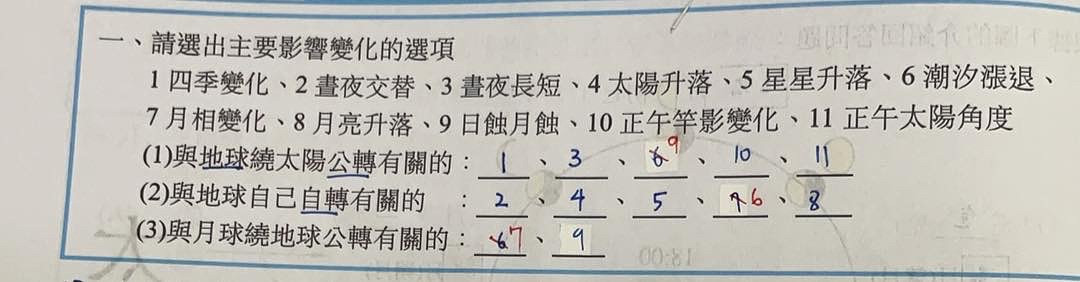 一、請選出主要影響變化的選項
1 四季變化、2 晝夜交替、3 晝夜長短、4 太陽升落、5 星星升落、6 潮汐漲退、
7 月相變化、8 月亮升落、9 日蝕月蝕、10 正午竿影變化、11 正午太陽角度
(1)與地球繞太陽公轉有關的：1、3、6 9、10、11
(2)與地球自己自轉有關的 ：2、4、5、6、8
(3)與月球繞地球公轉有關的：6 7、9
18:00